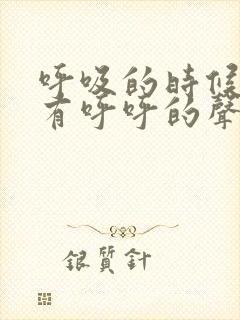 呼吸的時候
有呼呼的聲
銀質針